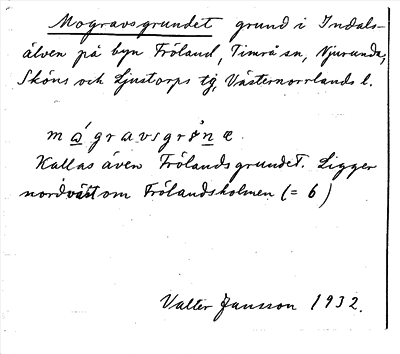 Mogravsgrundet grund i Indals-
älven på byn Fröland, Timrå sn, Njurunda,
Sköns och Ljustorps tg, Västernorrlands l.
mágravsgrønæ.
Kallas även Frölandsgrundet. Ligger
nordväst om Frölandsholmen (= 6)
Valter Jansson 1932.